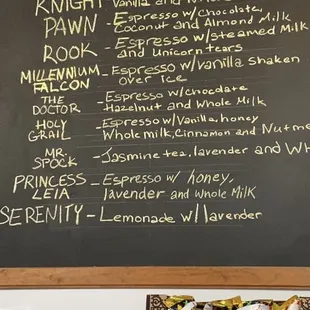 KNIGHT Vanilla and
PAWN - Espresso w/chocolate,
Coconut and Almond Milk
ROOK - Espresso w/steamed Milk
and Unicorn tears
MILLENNIUM - Espresso w/vanilla shaken
FALCON over ice
THE - Espresso w/chocolate
DOCTOR Hazelnut and Whole Milk
HOLY - Espresso w/Vanilla, honey
GRAIL Whole milk, Cinnamon and Nutme
MR. - Jasmine tea, lavender and Wh
SPOCK
PRINCESS - Espresso w/ honey,
LEIA lavender and Whole Milk
SERENITY - Lemonade w/ lavender